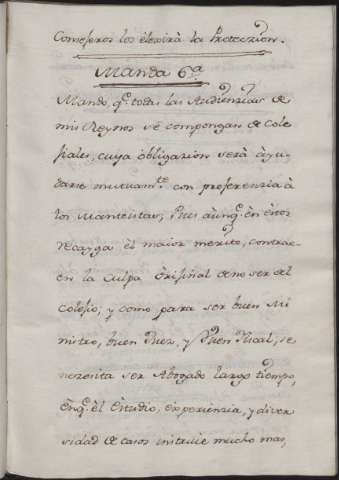 Consejeros los elevirà la Proteczion.
Manda 6.ª
Mando, q.e todas las Audiencias de
mis Reynos se compongan de Cole
jiales, cuya obligazion serà àyu-
darse mutuam.te con preferenzia à
los Manteistas; Pues àunq.e èn èstos
recayga èl maior merito, contrae-
èn la culpa òrijinal de no ser del
Colejio; y como para ser buen Mi
nistro, buen Juez, y Buen Fiscal, se
nezesita ser Abogado largo tiempo,
èn q.e èl Estudio, èxperienzia, y diver
sidad de casos instruie mucho mas,